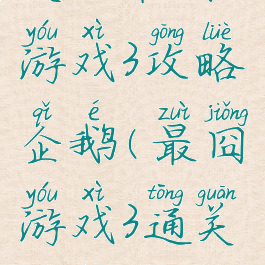 yóu xì gōng lüè
游戏3攻略
qǐ é zuì jiǒng
企鹅(最囧
yóu xì tōng guān
游戏3通关